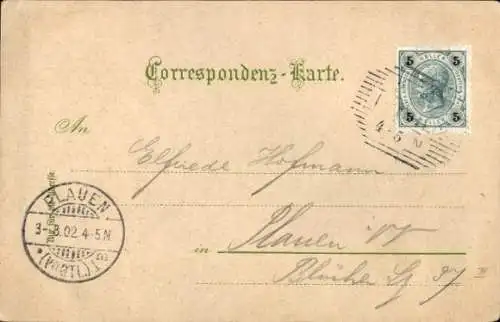 Correspondenz-Karte.
5 5
HELLER
5 5
4-5
2
An
Elfriede Hofmann
PLAUEN
3-8.02.4-5N
*(VOGTL.)1*
in Plauen i/V
Blücher
37 II